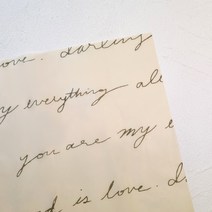 love. darling
my everything all
you are my e
d is love. d